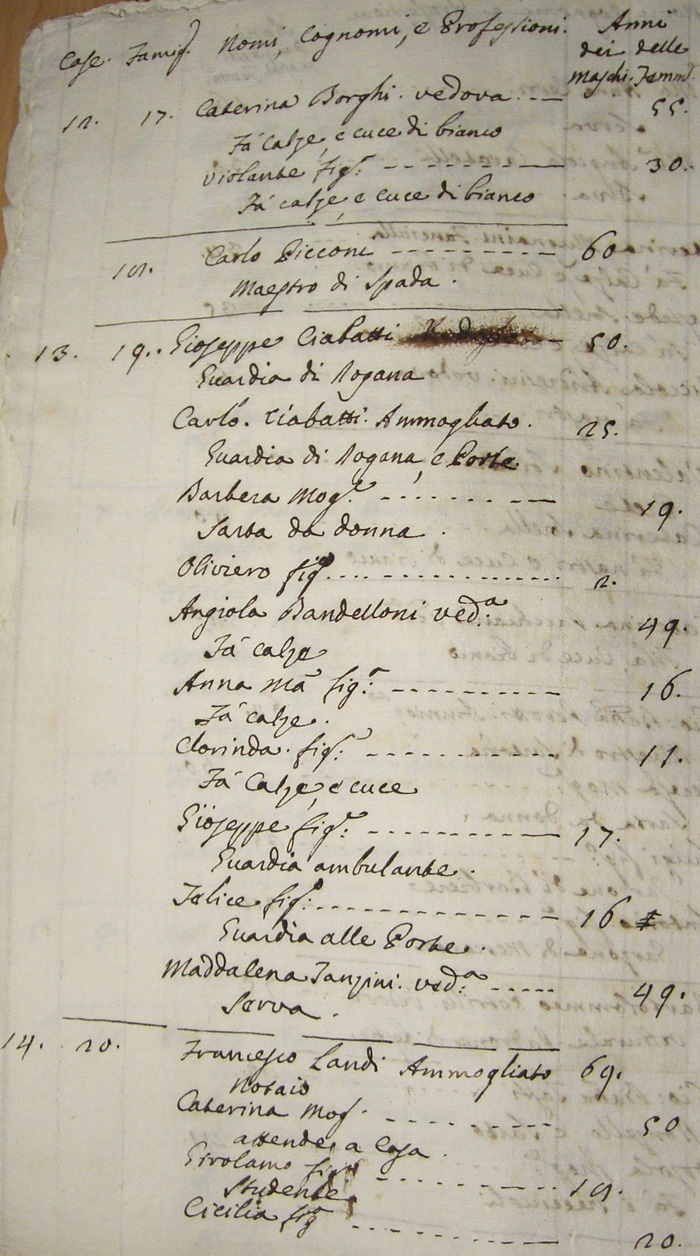 Case. Famig. Nomi, Cognomi, e Professioni. Anni
dei delle
Maschi. Femm.
12. 17. Caterina Borghi. vedova. 55.
Fà calze, e cuce di bianco
Violante fig.a 30.
Fà calze, e cuce di bianco
18. Carlo Picconi 60
Maestro di Spada.
13. 19. Gioseppe Ciabatti 50.
Guardia di Dogana
Carlo. Ciabatti. Ammogliato. 25.
Guardia di Dogana, e Porte
Barbera Mog.e 19.
Sarta da donna.
Oliviero fig.o 2.
Angiola Bandelloni ved.a 49.
Fà calze
Anna Ma fig.a 16.
Fà calze.
Clorinda. fig.a 11.
Fà Calze, e cuce
Gioseppe fig.o 17.
Guardia ambulante.
Felice fig. 16.
Guardia alle Porte.
Maddalena Fanzini. ved.a 49.
Serva.
14. 20. Francesco Landi Ammogliato 69.
Notaio
Caterina Mog. 50
attende a Casa.
Girolamo fig.o 18.
Studente
Cicilia fig.a 20.